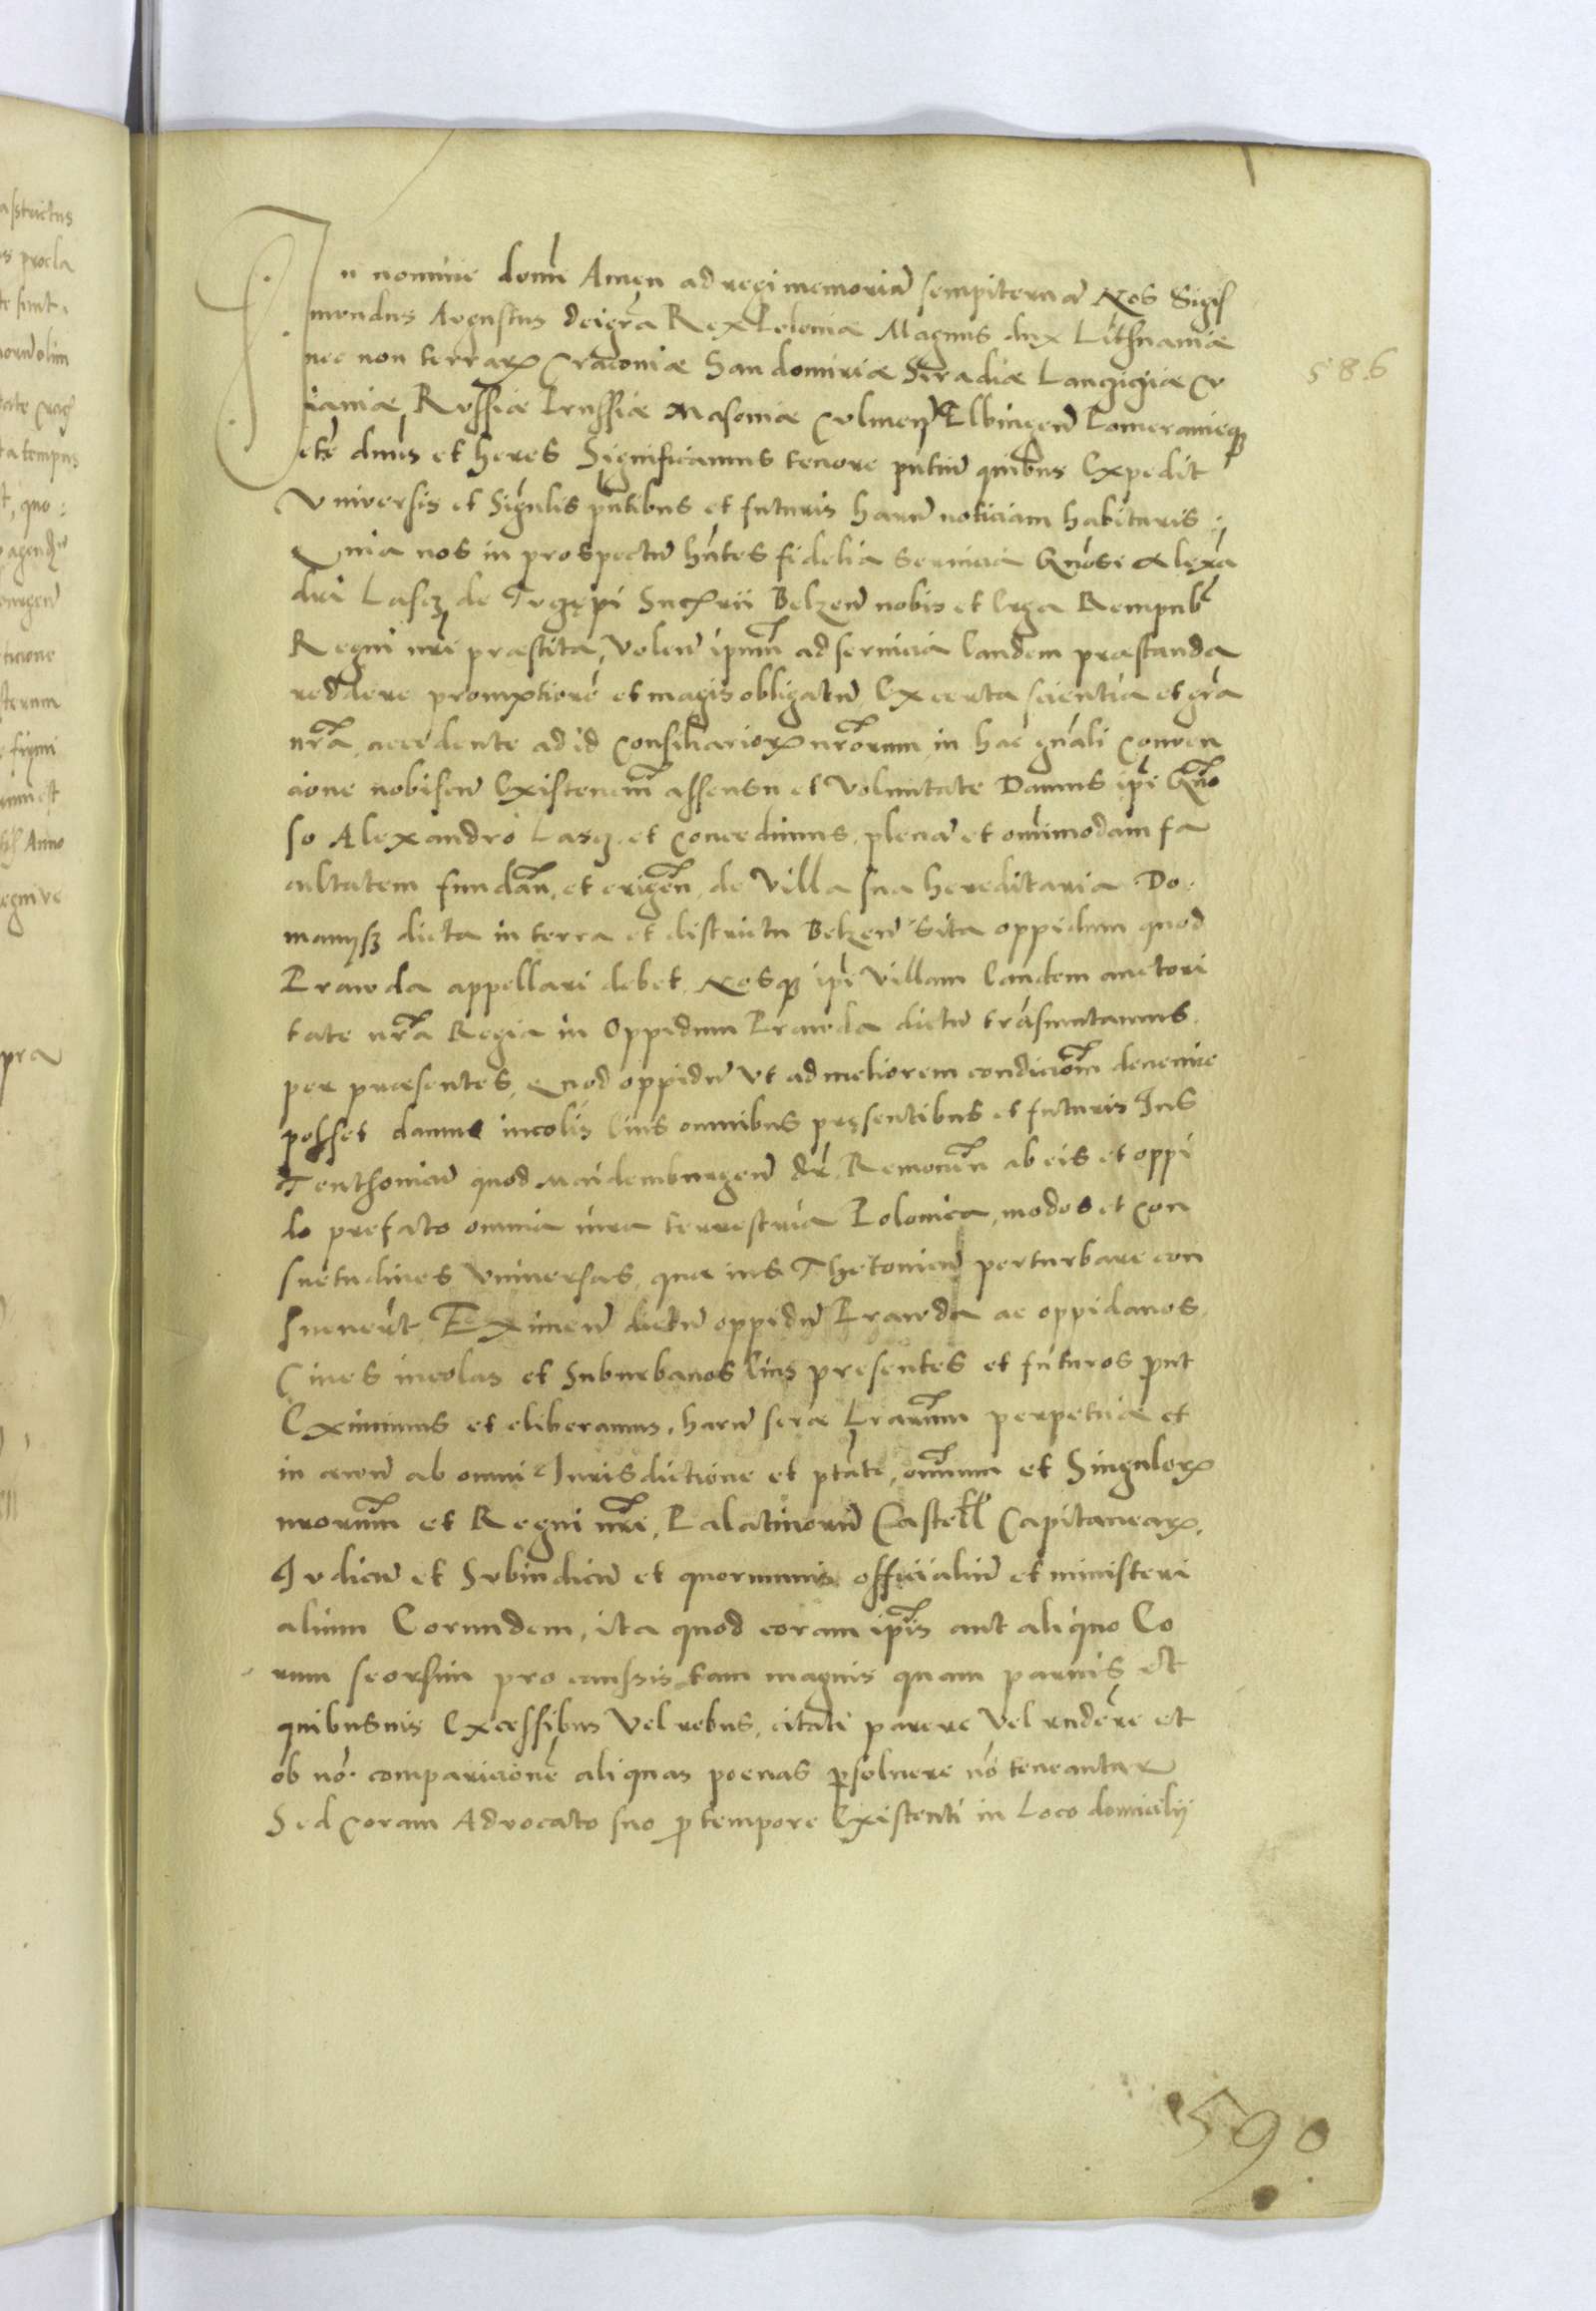 In nomine domī Amen ad regi memoriā sempiternā Nos Sigis
mundus Avgustus dei grã Rex Poloniæ Magnus dux Lithuaniæ
nec non terrarꝝ Cracoviæ Sandomiriæ Siradiæ Lancziciæ Cv
iaviæ Rvssiæ Prussiæ Masoviæ Cvlmeñ Elbingeñ Pomeranieqꝫ
etc̃ dnus et heres Significamus tenore pñtiũ quibus Expedit
Vniversis et Sigulis pñtibus et futuris harũ noticiam habituris :
Quia nos in prospectũ hñtes fidelia servicia Gñosi Alexã
dri Lascz de Tvczępi Succ̃rii Belzeñ nobis et Erga Rempub͂
Regni nrĩ præstita, volen̄ ipm̃ ad servicia Eandem præstanda
reddere promptiorē et magis obligatũ, Ex certa scientia et grã
nrã, accedente ad id Consiliariorꝝ nrõrum, in hac gñali Conven
cione nobiscũ Existeneĩm assensu et Voluntate Damus ipĩ Gño
so Alexandro Lascz. et Concedimus, plenā et omĩmodam fa
cultatem fundãn, et erigẽn, de Villa sua hereditaria Do=
manysz dicta in terra et districtu Belzeñ Sita oppidum quod
Prawda appellari debet, Nosqꝫ ipĩ Villam Eandem auctori
tate nrã Regia in Oppidum Prawda dictũ trāsmutamus.
per præsentes, Quod oppidũ Vt ad meliorem condiciõm devenire
posset damus incolis Eius omnibus pręsentibus et futuris Ius
Teuthonicũ quod Maidemburgeñ dr̃, Removẽn ab eis et oppi
do prefato omnia iura terrestria Polonica, modos et Con
suetudines Vniversas, quæ ius Thetonicũ perturbare con
sueverũt, Eximeñ dictũ oppidũ Prawda ac oppidanos
Cives incolas et Suburbanos Eius presentes et futuros ꝓut
Eximimus et eliberamus, harũ seræ Lrãrum perpetuæ et
in ævũ ab omni Iurisdictione et ptãte, omĩum et Singulorꝝ
nrorum̃ et Regni nrĩ, Palatinorũ Castell̃ Capitanearꝝ,
Iudicũ et Svbiudicũ et quorumvis officialiũ et ministeri
alium Eorundem, ita quod coram ipĩs aut aliquo Eo
rum seorsim pro caussis tam magnis quam parvis et
quibusvis Excessibus Vel rebus, citati parere Vel rndẽre et
ob nõ comparicionē aliquas poenas ꝑsolvere nõ teneantur
Sed Coram Advocato suo ꝓ tempore Existenti in Loco domicilij
586
590